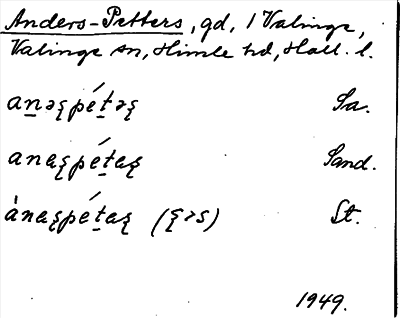 Anders-Petters, gd, 1 Valinge,
Valinge sn, Himle hd, Hall. l.
an̲əʂpét̲əʂ Sa.
anaʂpét̲aʂ Sand.
ànaʂpét̲aʂ (ʂɂs) St.
1949.